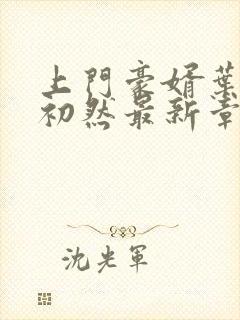 上門豪婿葉
初然最新章
沈光軍